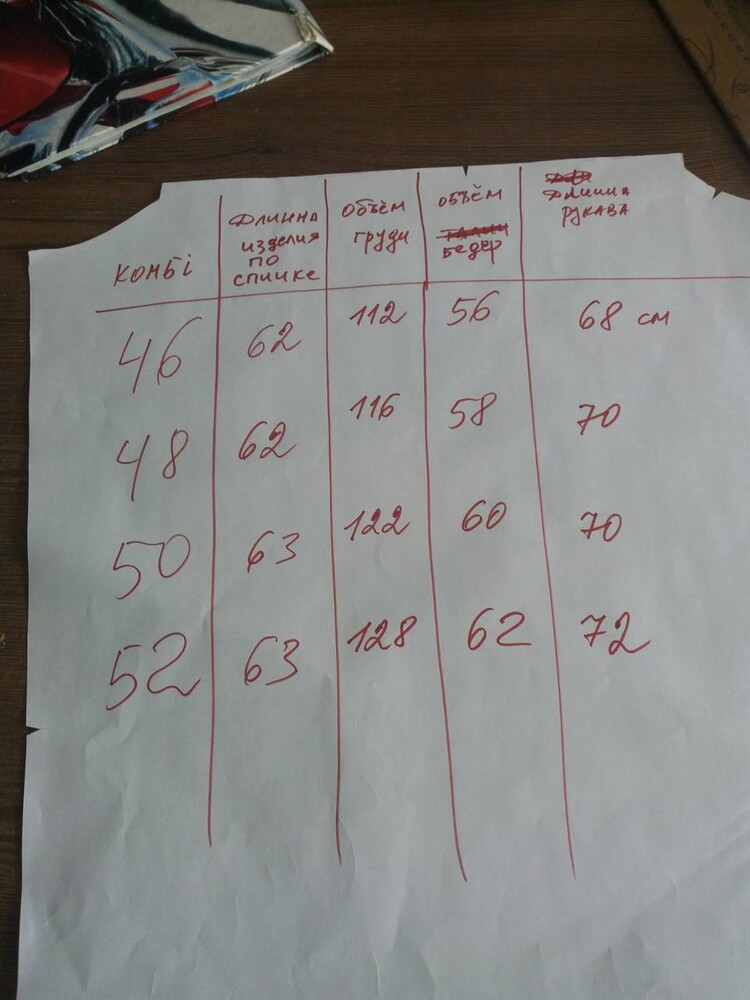 комбі
Длинна
изделия
по
спинке
Объём
груди
объём
бедер
Длинна
рукава
46 62 112 56 68 см
48 62 116 58 70
50 63 122 60 70
52 63 128 62 72